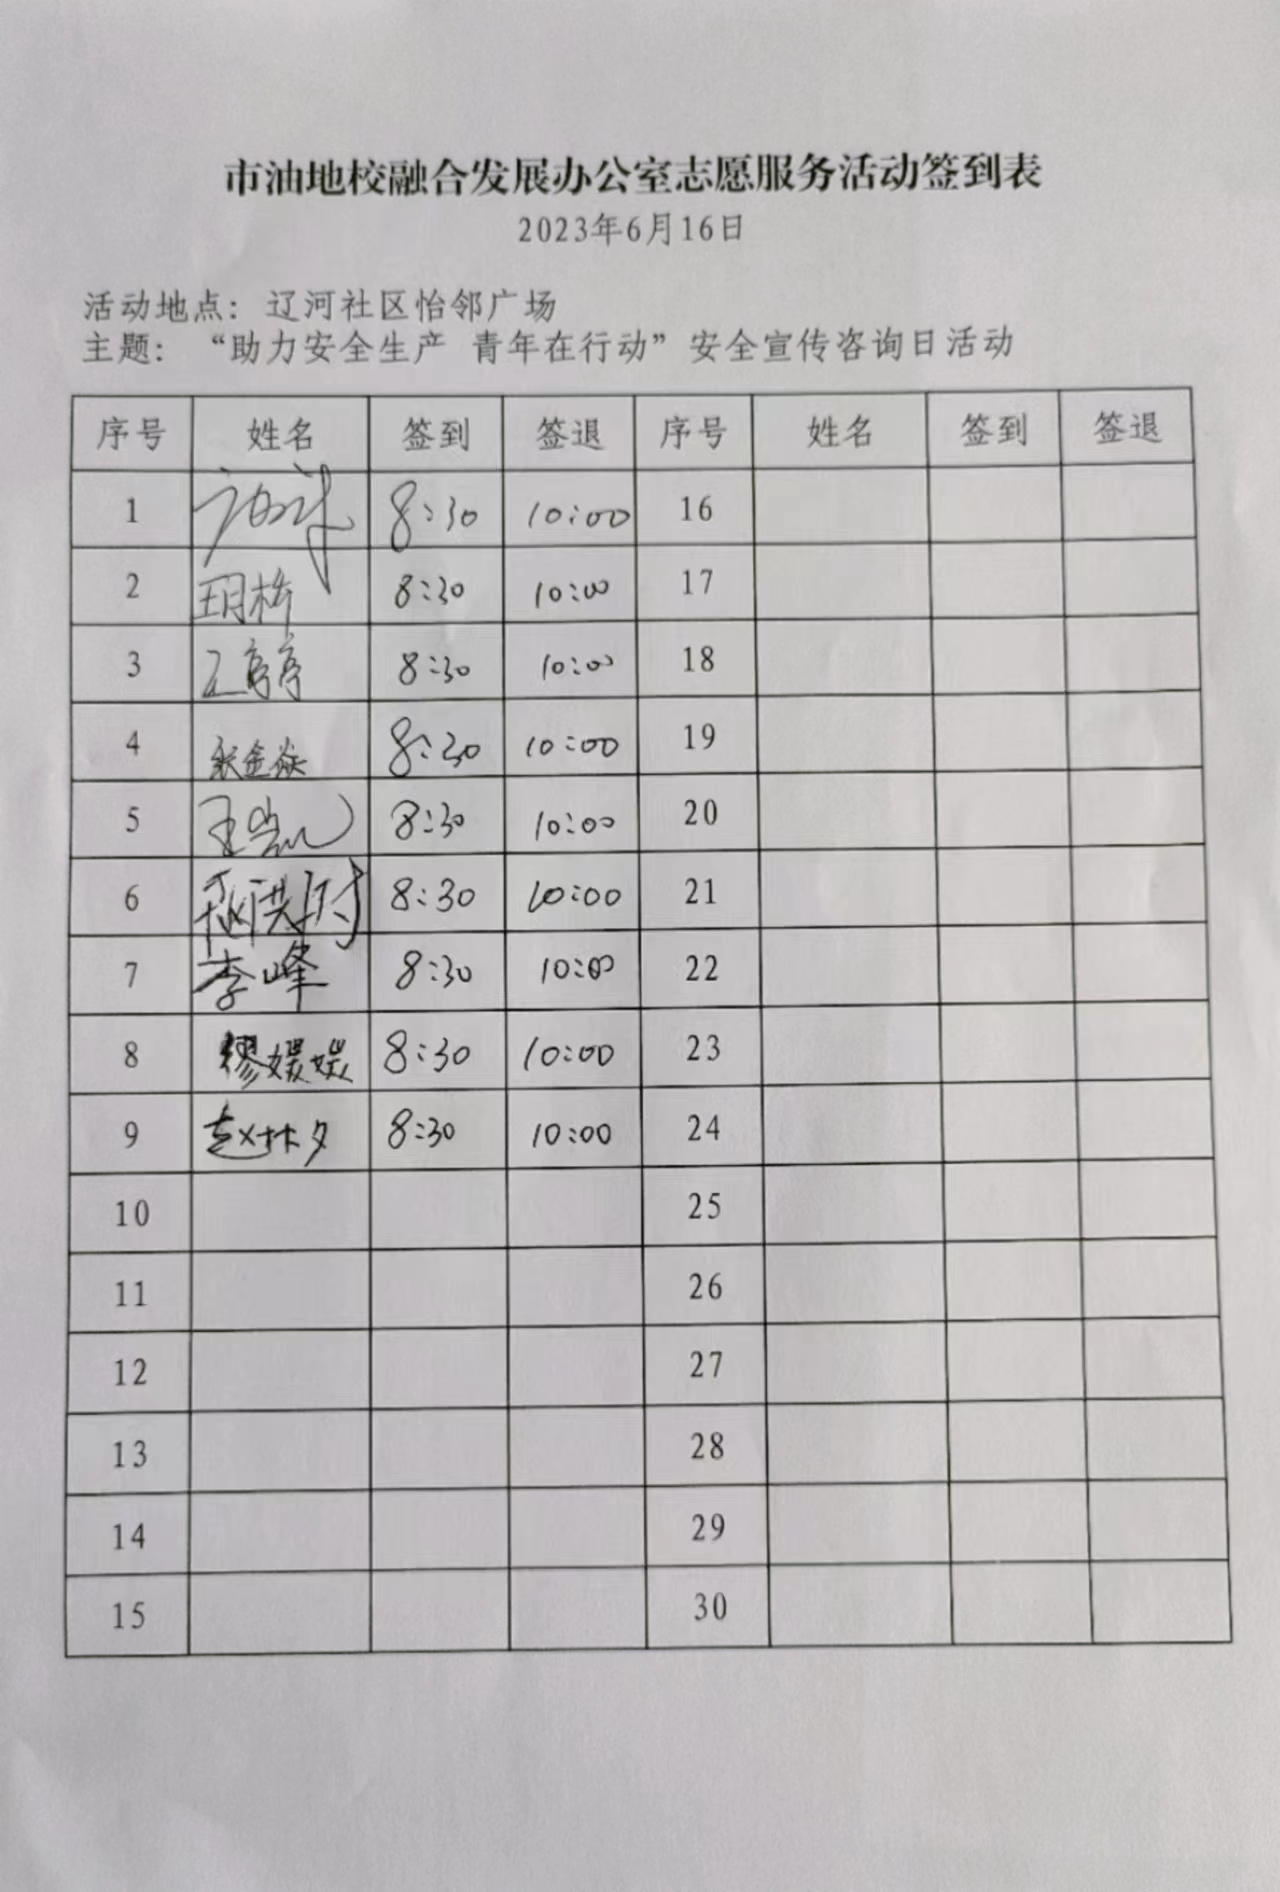 市油地校融合发展办公室志愿服务活动签到表
2023年6月16日
活动地点：辽河社区怡邻广场
主题：“助力安全生产 青年在行动”安全宣传咨询日活动
序号 姓名 签到 签退 序号 姓名 签到 签退
1 8:30 10:00 16
2 8:30 10:00 17
3 8:30 10:00 18
4 8:30 10:00 19
5 8:30 10:00 20
6 8:30 10:00 21
7 李峰 8:30 10:00 22
8 缪媛媛 8:30 10:00 23
9 赵林夕 8:30 10:00 24
10 25
11 26
12 27
13 28
14 29
15 30